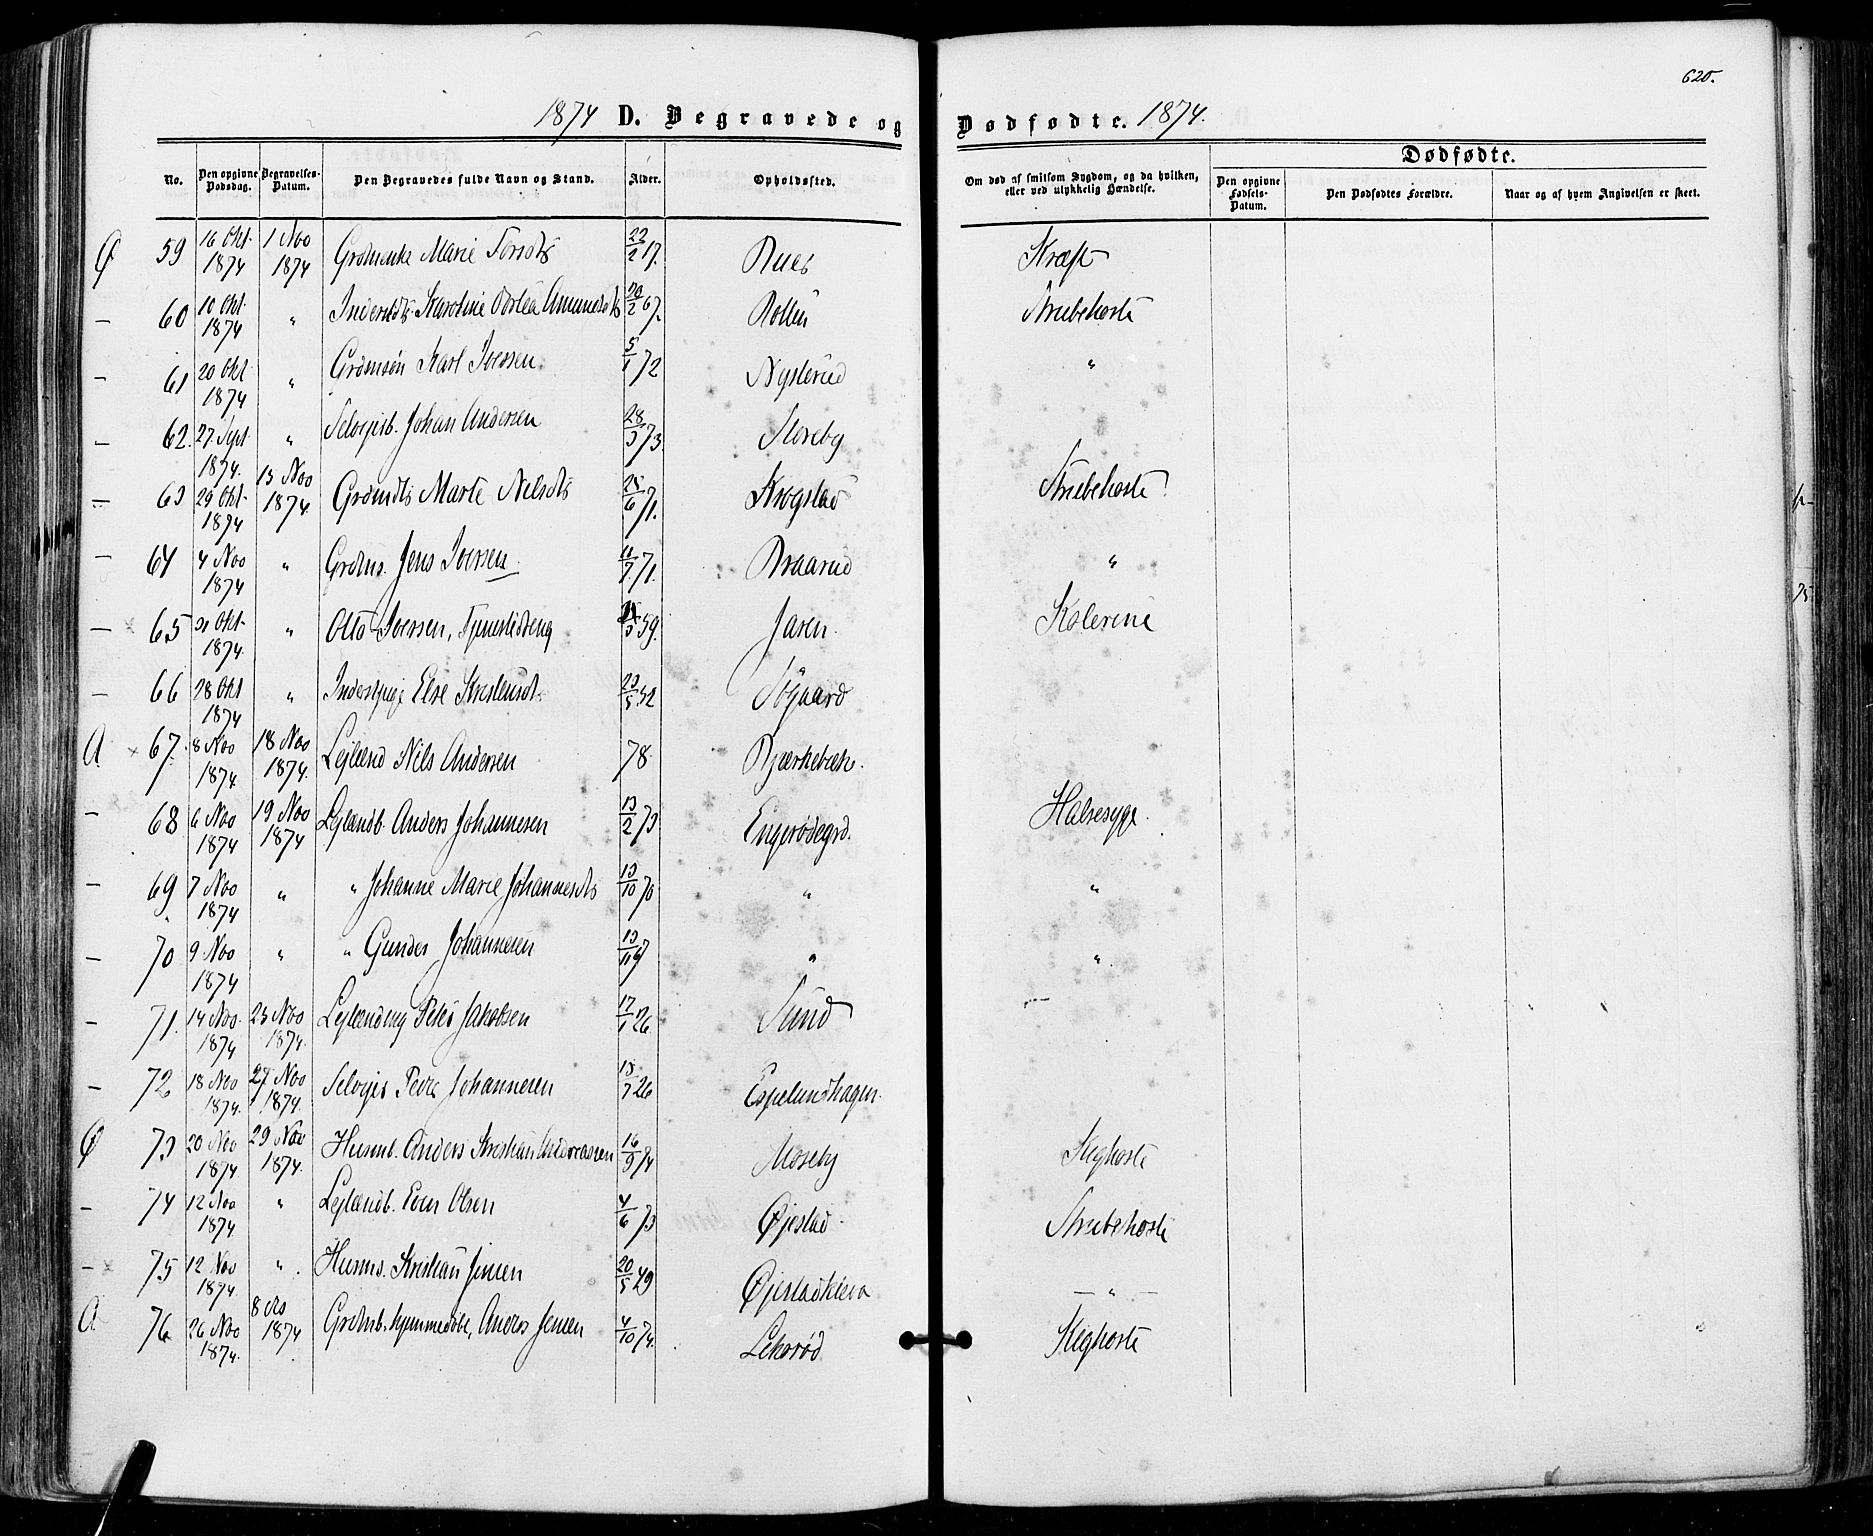 620.
1874 D. Begravede og Dødfødte. 1874.
Dødfødte.
No. Den opgivne Dødsdag. Begravelses-Datum. Den Begravedes fulde Navn og Stand. Alder. Opholdssted. Om død af smitsom Sygdom, og da hvilken, eller ved ulykkelig Hændelse. Den opgivne Fødsels-Datum. Den Dødfødtes Forældre. Naar og af hvem Angivelsen er skeet.
Ø 59 16 Okt. 1874 1 Nov 1874 Marie 22/2 17. Rues Kræft
— 60 10 Okt. 1874 " Karoline 20/2 67. Strubehoste
— 61 20 Okt 1874 " Karl Iversen. 5/1 72 Nysterud "
— 62. 27 Sept 1874. " Selveierb. Johan Andersen 28/3 73. Floreby
— 63 29 Okt. 1874 15 Nov 1874 Grdmdts Marte Nilsdts 25/6 71. Krogstad Strubehoste
— 64 4 Nov 1874 " Grdms. Jens Iversen 11/7 71. Braarud "
— 65 21 Okt. 1874. " Otto Iversen, Tjenestedreng 59. Jaren. Kolerine
— 66 28 Okt 1874 " Inderstpige Else Kristensdt. 23/5 52 Søgaard
A 67. 8 Nov 1874. 18 Nov 1874. Leilænd Nils Andersen 78. Bjærkebæk.
— 68 6 Nov 1874 19 Nov 1874 Leilændb. Anders Johannesen 13/2 73 Engerødegrd. Halsesyge.
— 69 7 Nov 1874 " " Johanne Marie Johannesdts 13/10 70 " "
— 70 9 Nov 1874 " " Gunder Johannesen 13/11 67 " "
— 71. 14 Nov. 1874 23 Nov 1874. Peder Jakobsen 17/1 26. Sund
— 72 18 Nov 1874. 27 Nov 1874. Selveier Peder Johannesen 13/7 26 Espelundhagen.
Ø 73 20 Nov 1874. 29 Nov 1874. Husmb. Anders Kristian Andreassen 16/9 74 Moseby Kighoste
— 74 12 Nov 1874 " Leilændb. Even Olsen 4/6 73 Øjestad. Strubehoste
— 75 12 Nov 1874. " Husms. Kristian Jensen 20/5 49 Øjestadkleva — " —
A 76. 26 Nov 1874. 8 Ds 1874 Grdmb. hjemmedøbt, Anders Jensen 4/10 74. Lekerød Kighoste